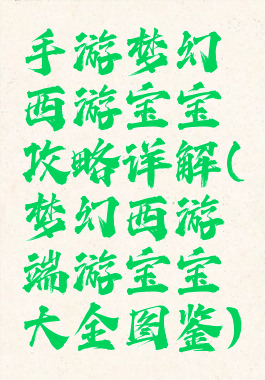 手游梦幻
西游宝宝
攻略详解(
梦幻西游
端游宝宝
大全图鉴)